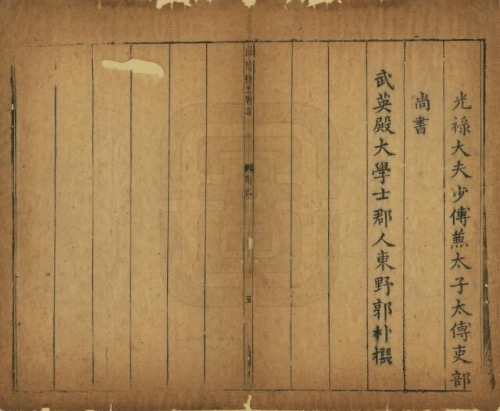 光祿大夫少傅蕪太子太傅吏部
尚書
武英殿大學士郡人東野郭朴撰
五